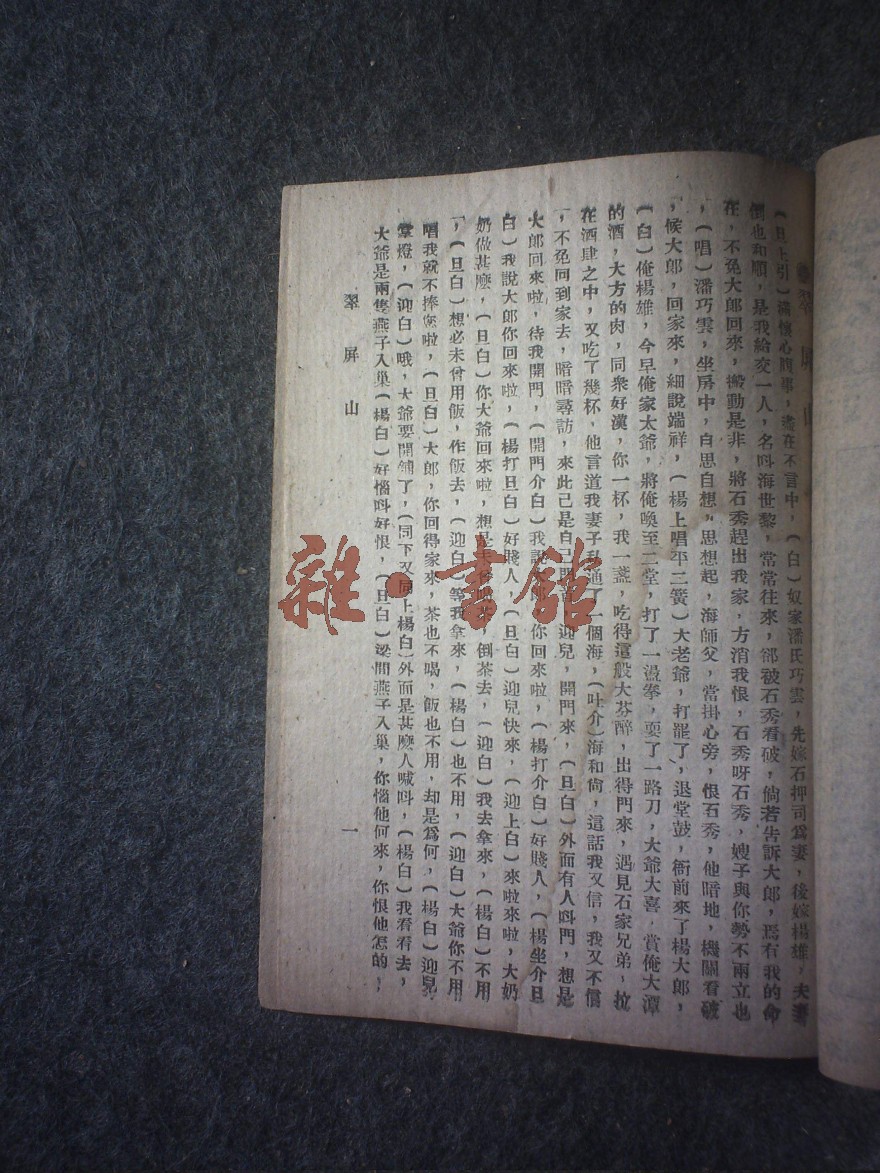 翠屏山
(旦上引)滿懷心腹事，盡在不言中，(白)奴家潘氏巧雲，先嫁石押司爲妻，後嫁楊雄，夫妻
倒也和順，是我給交一人，名呌海世黎，常常往來，卻被石秀看破，倘若告訴大郎，焉有我的命
在，不免大郎回來，搬動是非，將石秀趕出我家，方消我恨，石秀呀石秀，嫂子與你勢不兩立也
，(唱)潘巧雲，坐房中，自思自想，思想起，海師父，常掛心旁，恨石秀，他暗地，機關看破
，候大郎，回家來，細說端祥，(楊上唱平二簧)大老爺，打罷了，退堂鼓，衙前來了楊大郎，
(白)俺楊雄，今早俺家太爺，將俺喚至二堂，打了一盪拳，耍了一路刀，大爺大喜，賞俺大潭
的酒，大方的肉，同衆好漢，你一杯，我一盞，吃得這般大芬醉，出得門來，遇見石家兄弟，拉
在酒肆之中，又吃了幾杯，他言道我妻子私通了一個海，(吐介)海和尙，這話我又信，我又不信
，不免回到家去，暗暗尋訪，來此已是自己門首，迎兒，開門來，(旦白)外面有人呌門，想是
大郎回來啦，待我開門，(開門介白)我說大郎，你回來啦，(楊打介白)好賤人，(楊坐介旦
白)我說大郎你回來啦，(楊打旦白)好賤人，(旦白)迎兒快來，(迎上白)來啦來啦，大奶
奶做甚麽，(旦白)你大爺回來啦，想是茶，倒茶去，(迎白)我去拿來，(楊白)不用
，(旦白)想必未曾用飯，作飯去，(迎白)等我拿來，(楊白)也不用，(迎白)大爺你不用
唱我就不捧您啦，(旦白)大郎，你回得家來，茶也不喝，飯也不用，却是爲何，(楊白)迎兒
掌燈，(迎白)哦，大爺要開鋪了，(同下又同上楊白)外面是甚麽人喊呌，(楊白)我看看去，
大爺是兩隻燕子入巢(楊白)好惱呌好恨，(旦白)梁間燕子入巢，你惱他何來，你恨他怎的，
翠屏山
一
雜·書舘